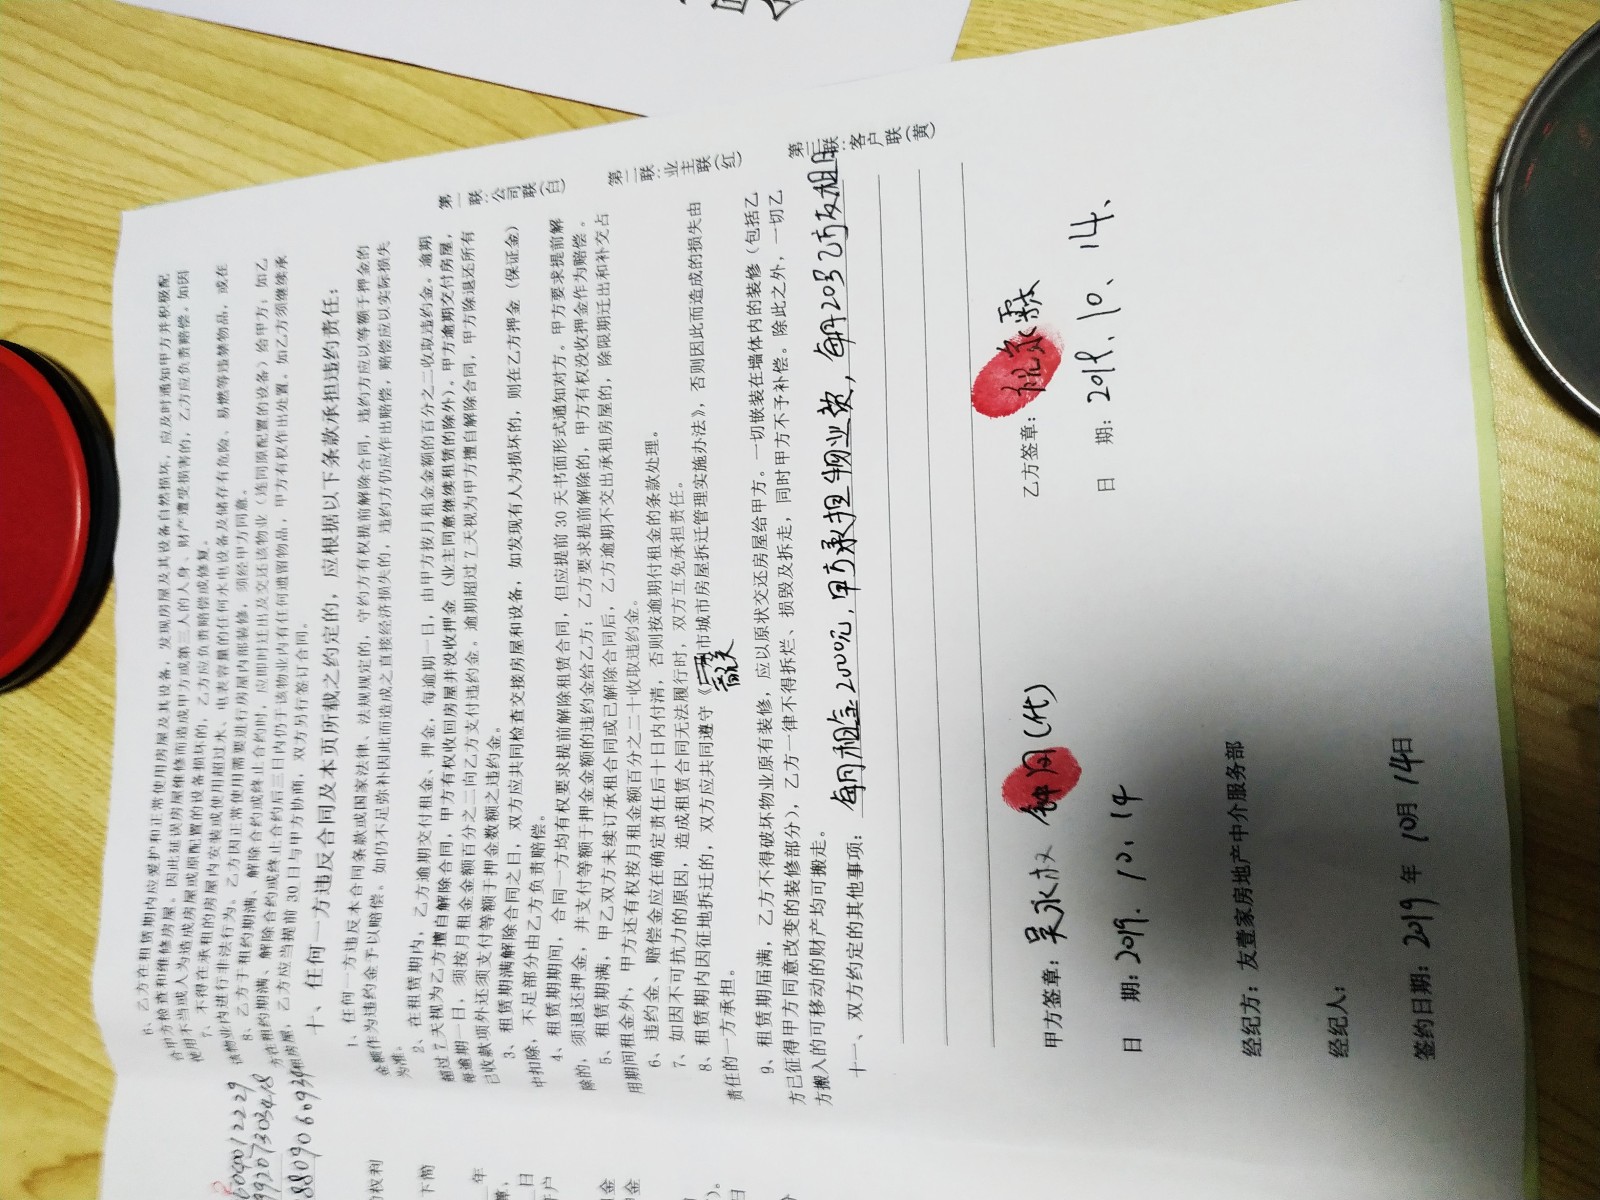 6、乙方在租赁期内应爱护和正常使用房屋及其设备，发现房屋及其设备自然损坏，应及时通知甲方并积极配
合甲方检查和维修房屋。因此延误房屋维修而造成甲方或第三人的人身、财产遭受损害的，乙方应负责赔偿。如因
使用不当或人为造成房屋或原配置的设备损坏的，乙方应负责赔偿或修复。
7、不得在承租的房屋内安装或使用超过水、电表容量的任何水电设备及储存有危险、易燃等违禁物品，或在
该物业内进行非法行为。乙方因正常使用需要进行房屋内部装修，须经甲方同意。
8、乙方于租约期满、解除合约或终止合约时，应即时迁出及交还该物业（连同原配置的设备）给甲方；如乙
方在租约期满、解除合约或终止合约后三日内仍于该物业内有任何遗留物品，甲方有权作出处置。如乙方须继续承
租房屋，乙方应当提前30日与甲方协商，双方另行签订合同。
十、任何一方违反合同及本页所载之约定的，应根据以下条款承担违约责任：
1、任何一方违反本合同条款或国家法律、法规规定的，守约方有权提前解除合同，违约方应以等额于押金的
金额作为违约金予以赔偿。如仍不足弥补因此而造成之直接经济损失的，违约方仍应作出赔偿，赔偿应以实际损失
为准。
2、在租赁期内，乙方逾期交付租金、押金，每逾期一日，由甲方按月租金金额的百分之二收取违约金。逾期
超过7天视为乙方擅自解除合同，甲方有权收回房屋并没收押金（业主同意继续租赁的除外）。甲方逾期交付房屋，
每逾期一日，须按月租金金额百分之二向乙方支付违约金。逾期超过7天视为甲方擅自解除合同，甲方除退还所有
已收款项外还须支付等额于押金数额之违约金。
3、租赁期满解除合同之日，双方应共同检查交接房屋和设备，如发现有人为损坏的，则在乙方押金（保证金）
中扣除，不足部分由乙方负责赔偿。
4、租赁期期间，合同一方均有权要求提前解除租赁合同，但应提前30天书面形式通知对方。甲方要求提前解
除的，须退还押金，并支付等额于押金金额的违约金给乙方；乙方要求提前解除的，甲方有权没收押金作为赔偿。
5、租赁期满，甲乙双方未续订承租合同或已解除合同后，乙方逾期不交出承租房屋的，除限期迁出和补交占
用期间租金外，甲方还有权按月租金额百分之二十收取违约金。
6、违约金、赔偿金应在确定责任后十日内付清，否则按逾期付租金的条款处理。
7、如因不可抗力的原因，造成租赁合同无法履行时，双方互免承担责任。
8、租赁期内因征地拆迁的，双方应共同遵守《 市城市房屋拆迁管理实施办法》，否则因此而造成的损失由
责任的一方承担。
9、租赁期届满，乙方不得破坏物业原有装修，应以原状交还房屋给甲方。一切嵌装在墙体内的装修（包括乙
方已征得甲方同意改变的装修部分），乙方一律不得拆烂、损毁及拆走，同时甲方不予补偿。除此之外，一切乙
方搬入的可移动的财产均可搬走。
十一、双方约定的其他事项：每月租金2000元，甲方承担物业费，每月20号乙方交租
第一联：公司联（白）
第二联：业主联（红）
第三联：客户联（黄）
甲方签章：吴永权 （代）
乙方签章：
日 期：2019.10.14
日 期：2019.10.14.
经纪方：友壹家房地产中介服务部
经纪人：
签约日期：2019年10月14日